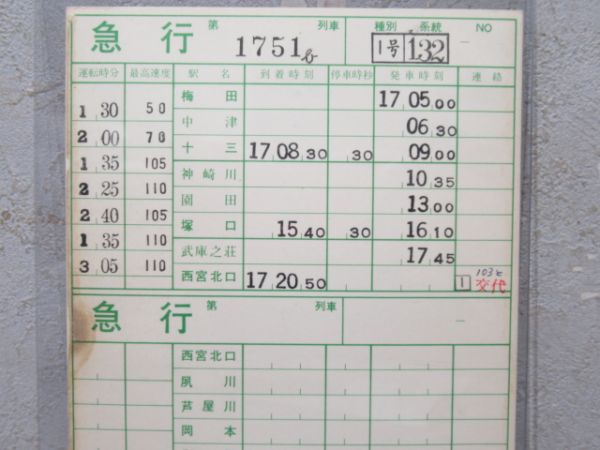 急行 第 1751b 列車 種別 系統 NO
1号 132 —
運転時分 最高速度 駅名 到着時刻 停車時秒 発車時刻 連絡
梅田 17 05 00
1 30 50
中津 06 30
2 00 70
十三 17 08 30 30 09 00
1 35 105
神崎川 10 35
2 25 110
園田 13 00
2 40 105
塚口 15 40 30 16 10
1 35 110
武庫之荘 17 45
3 05 110
西宮北口 17 20 50 1 103ヒ 交代
急行 第 列車 —
西宮北口
夙川
芦屋川
岡本